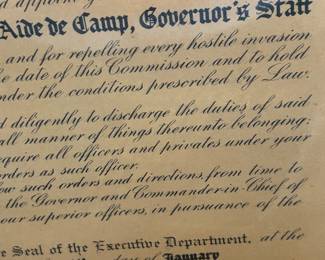 d appoint
Aide de Camp, Governor's Staff
and for repelling every hostile invasion
e date of this Commission and to hold
nder the conditions prescribed by Law.
d diligently to discharge the duties of said
all manner of things thereunto belonging;
equire all officers and privates under your
orders as such officer.
ow such orders and directions from time to
the Governor and Commander-in-Chief of
our superior officers, in pursuance of the
e Seal of the Executive Department, at the
day of January